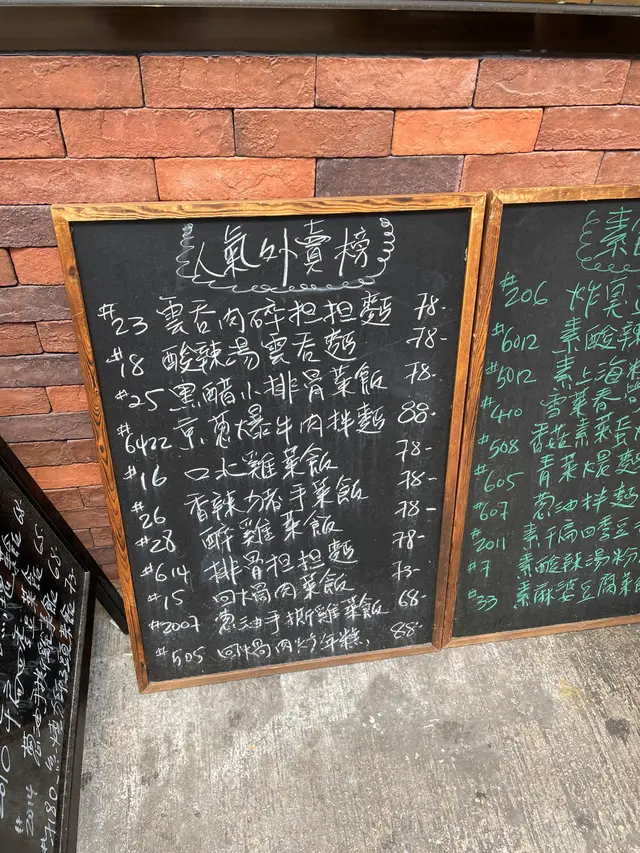 人氣外賣榜
#23 雲吞肉碎担担麵 78-
#18 酸辣湯雲吞麵 78-
#25 黑醋小排骨菜飯 78-
#6422 京蔥爆牛肉拌麵 88-
#16 口水雞菜飯 78-
#26 香辣豬手菜飯 78-
#28 醉雞菜飯 78-
#614 排骨担担麵 73-
#15 回鍋肉菜飯 68-
#2007 蔥油手撕雞菜飯
#505 回鍋肉炒年糕 88-
素
#206 炸臭
#6012 素酸辣
#5012 素上海
#410 雪菜
#508 香菇素菜
#605 青菜煨麵
#607 蔥油拌麵
#2011 素干扁四季豆
#7 素酸辣湯粉
#33 素麻婆豆腐菜
2010
#2014 蔥油手撕雞菜飯 65-
#7180